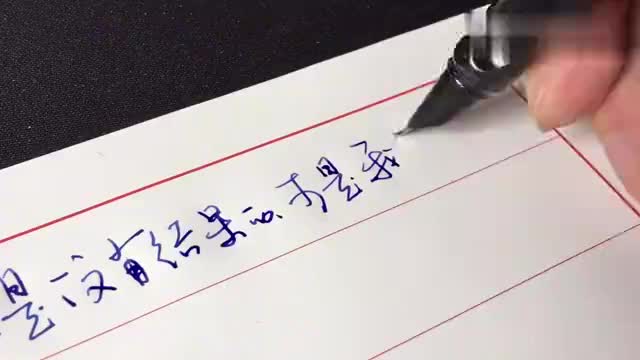 是没有结果的.才是我